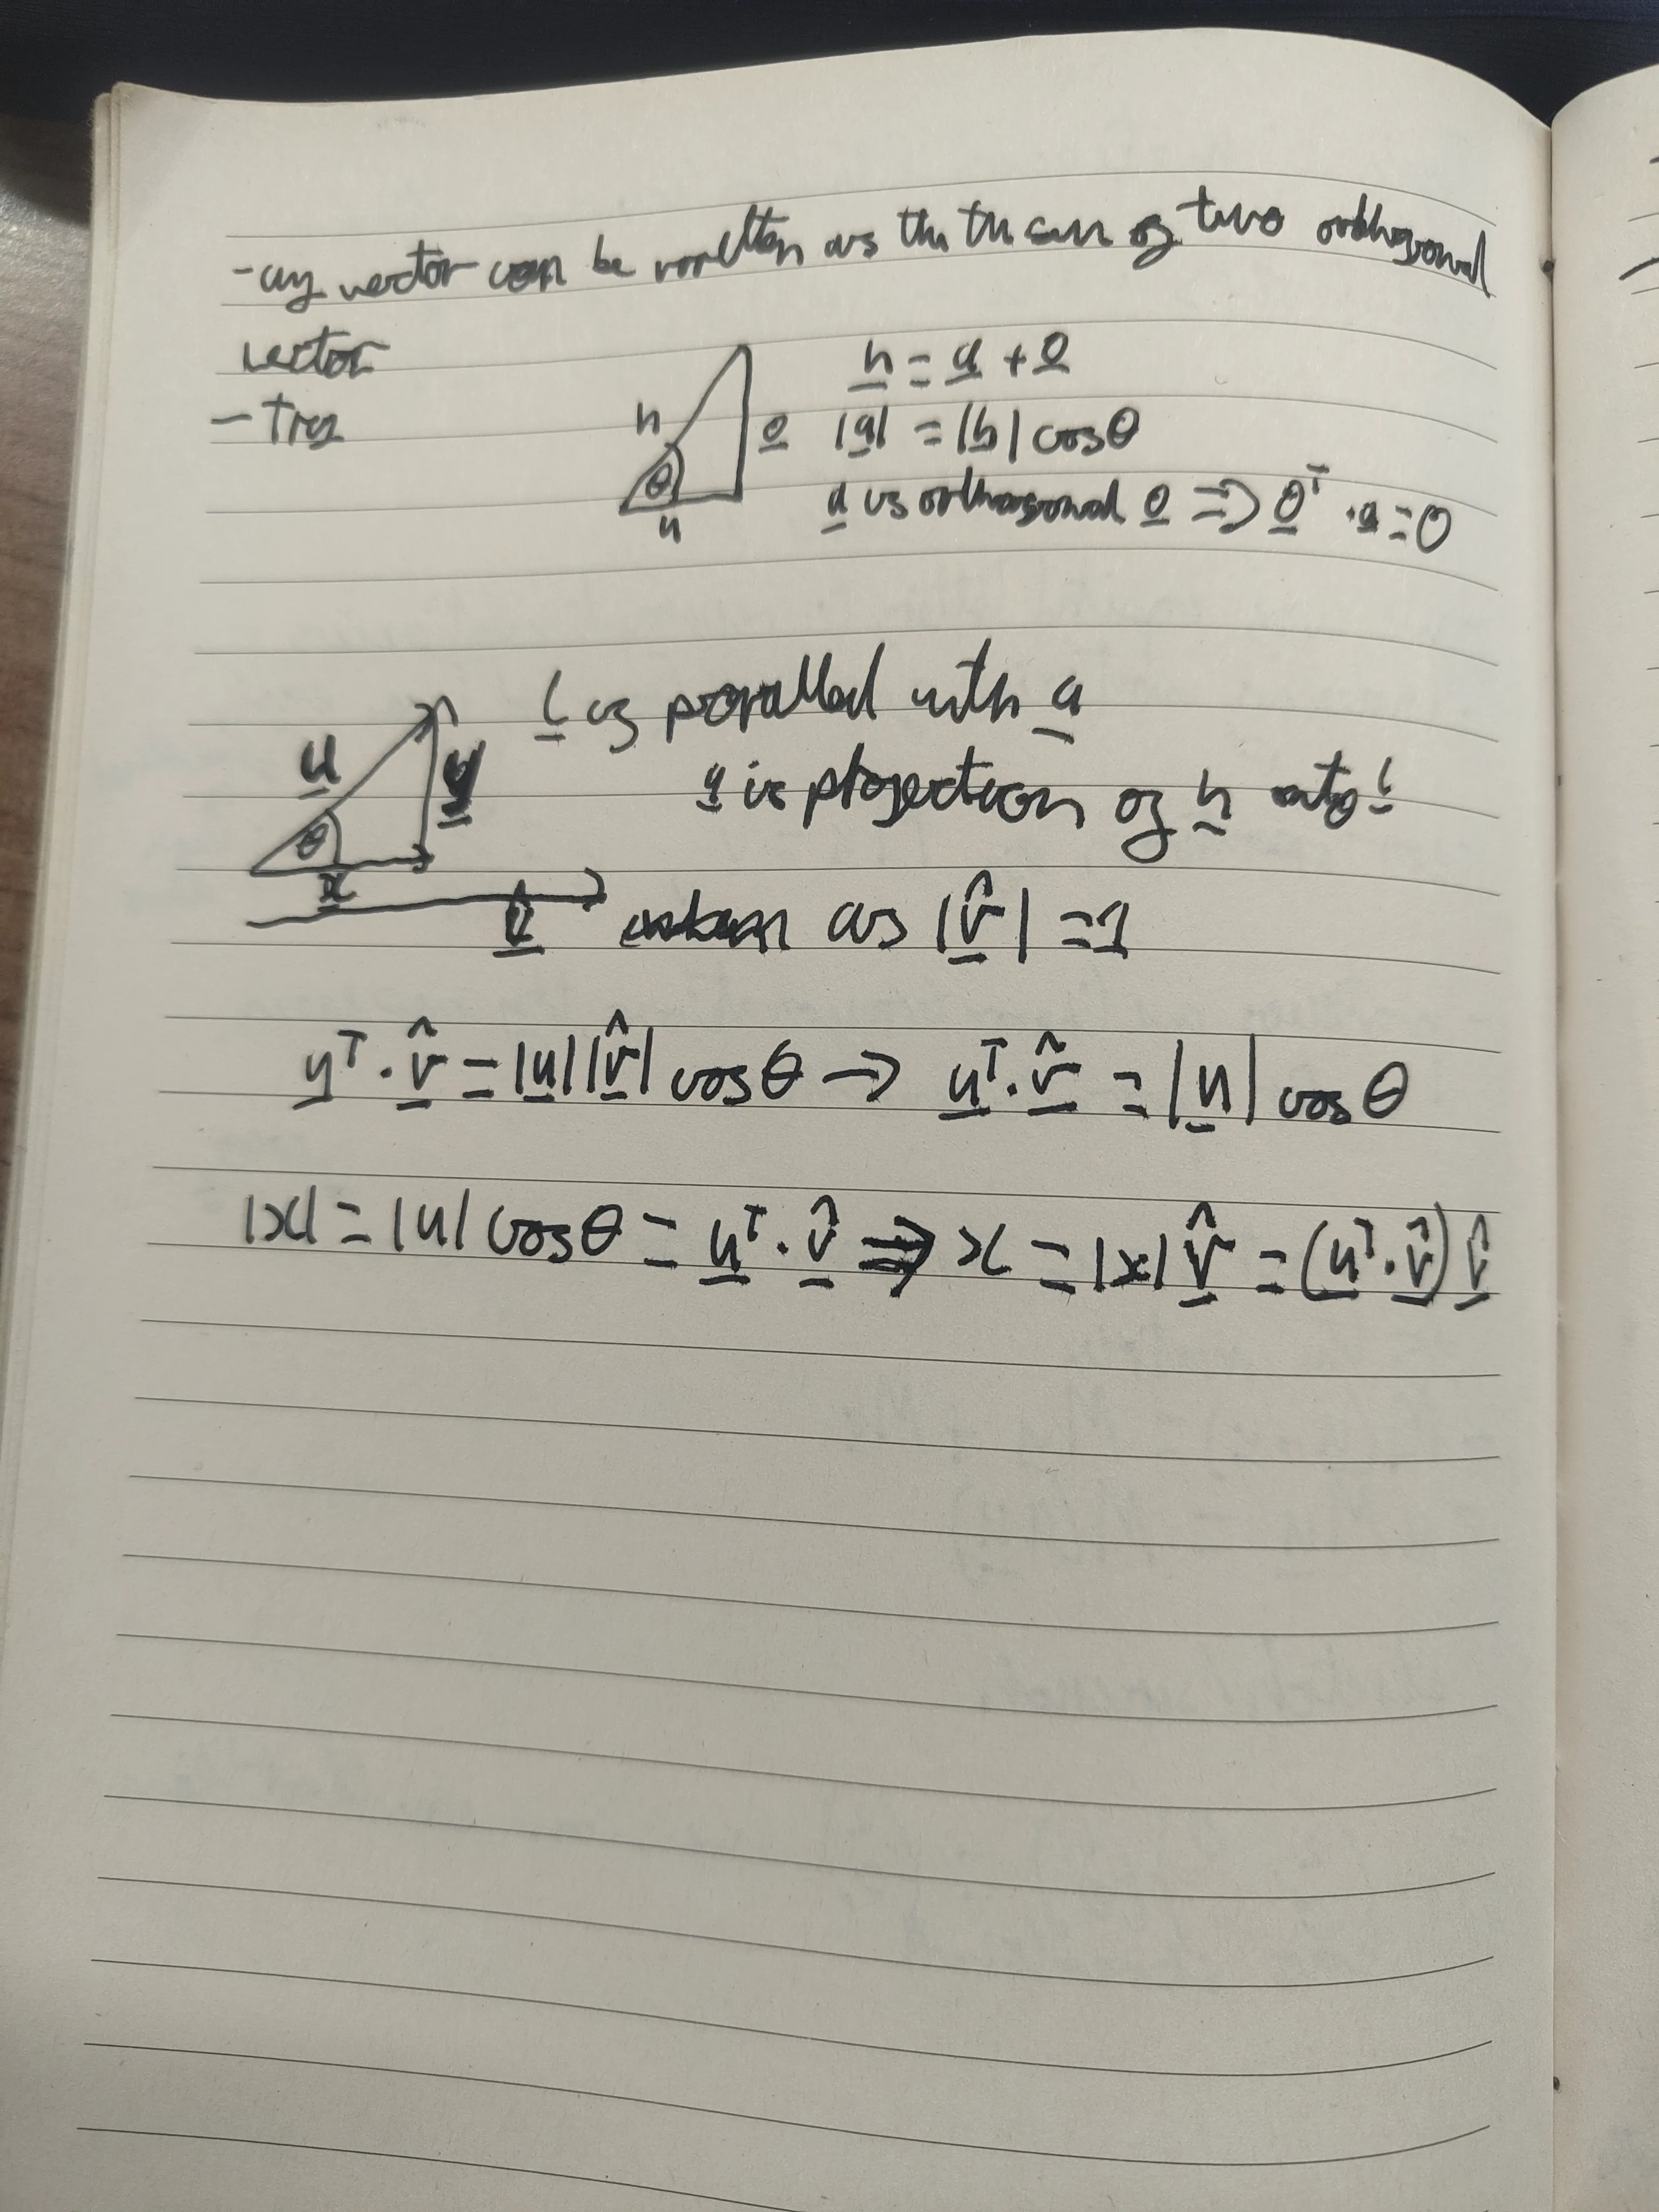 - any vector can be written as the the sum of two orthogonal
vector
- Trig
h = a + o
h
o |a| = |h| cosθ
θ
a is orthogonal o => o^T · a = 0
a
l is parallel with a
u y
a is projection of h onto l
θ
x
v̂ as |v̂| = 1
u^T · v̂ = |u||v̂| cosθ → u^T · v̂ = |u| cosθ
|x| = |u| cosθ = u^T · v̂ => x = |x| v̂ = (u^T · v̂) v̂